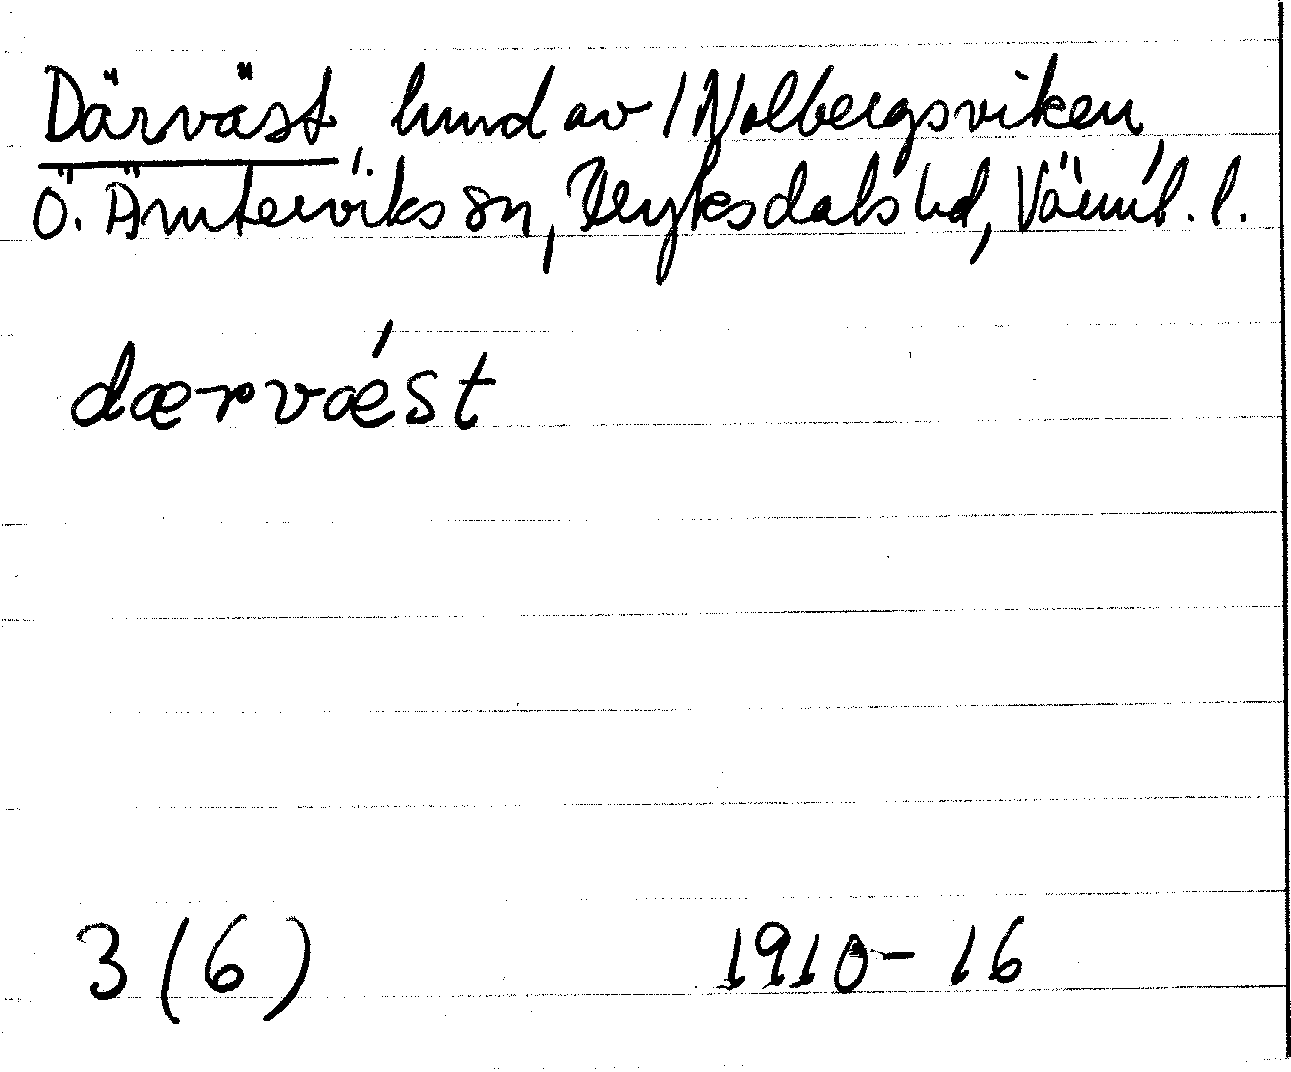 Därväst, hmd av 1 Nolbergsviken,
Ö. Ämterviks sn, Fryksdals hd, Värml. l.
dærvǽst
3 (6) 1910-16